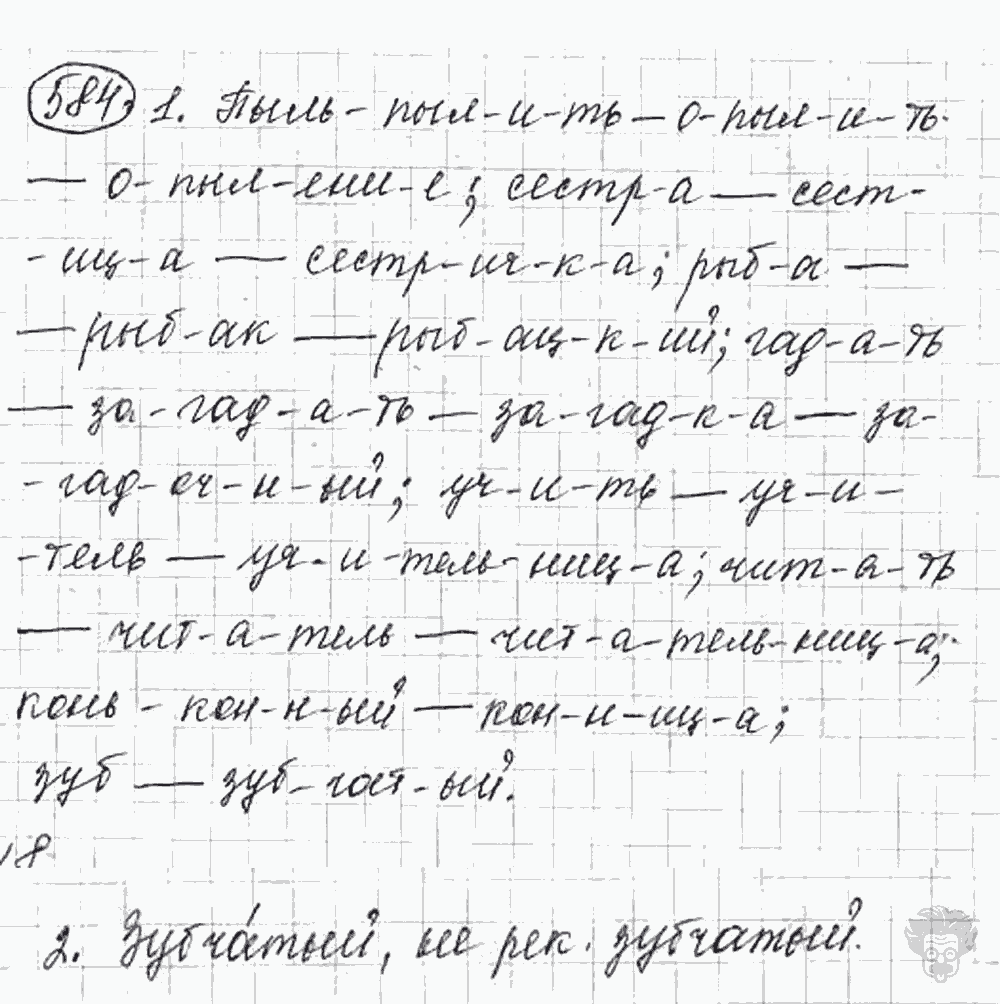 584. 1. Пыль - пыл-и-ть — о-пыл-и-ть
— о-пыл-ени-е; сестр-а — сест-
-иц-а — сестр-ич-к-а; рыб-а —
— рыб-ак — рыб-ац-к-ий; гад-а-ть
— за-гад-а-ть — за-гад-к-а — за-
-гад-оч-н-ый; уч-и-ть — уч-и-
-тель — уч-и-тель-ниц-а; чит-а-ть
— чит-а-тель — чит-а-тель-ниц-а;
конь - кон-н-ый — кон-н-иц-а;
зуб — зуб-чат-ый.
18
2. Зубча́тый, не рек. зубчатый.